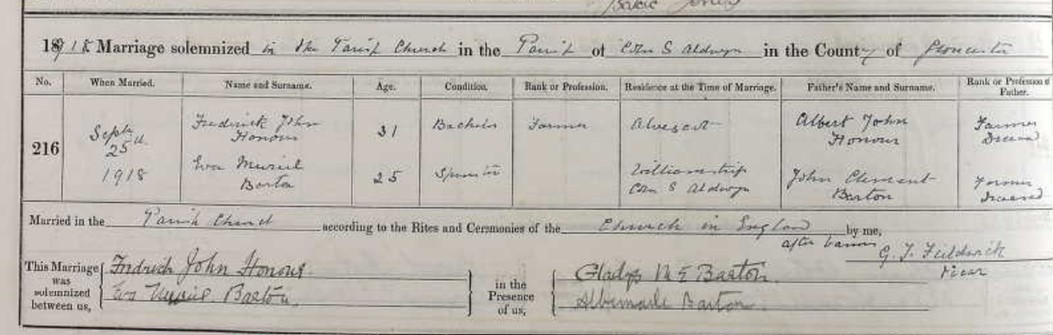 1918 Marriage solemnized in the Parish Church in the Parish of Coln S Aldwyn in the County of Gloucester
No. When Married. Name and Surname. Age. Condition. Rank or Profession. Residence at the Time of Marriage. Father's Name and Surname. Rank or Profession of Father.
216
Septr
25th
1918
Fredrick John
Honour
31
Bachelor
Farmer
Alvescot
Albert John
Honour
Farmer
Deceased
Eva Muriel
Barton
25
Spinster
Williamstrip
Coln S Aldwyn
John Clement
Barton
Farmer
Deceased
Married in the Parish Church according to the Rites and Ceremonies of the Church in England after banns by me,
G. F. Fieldwick
Vicar
This Marriage
was
solemnized
between us,
Fredrick John Honour.
Eva Muriel Barton.
in the
Presence
of us,
Gladys M E Barton.
Albemarle Barton.